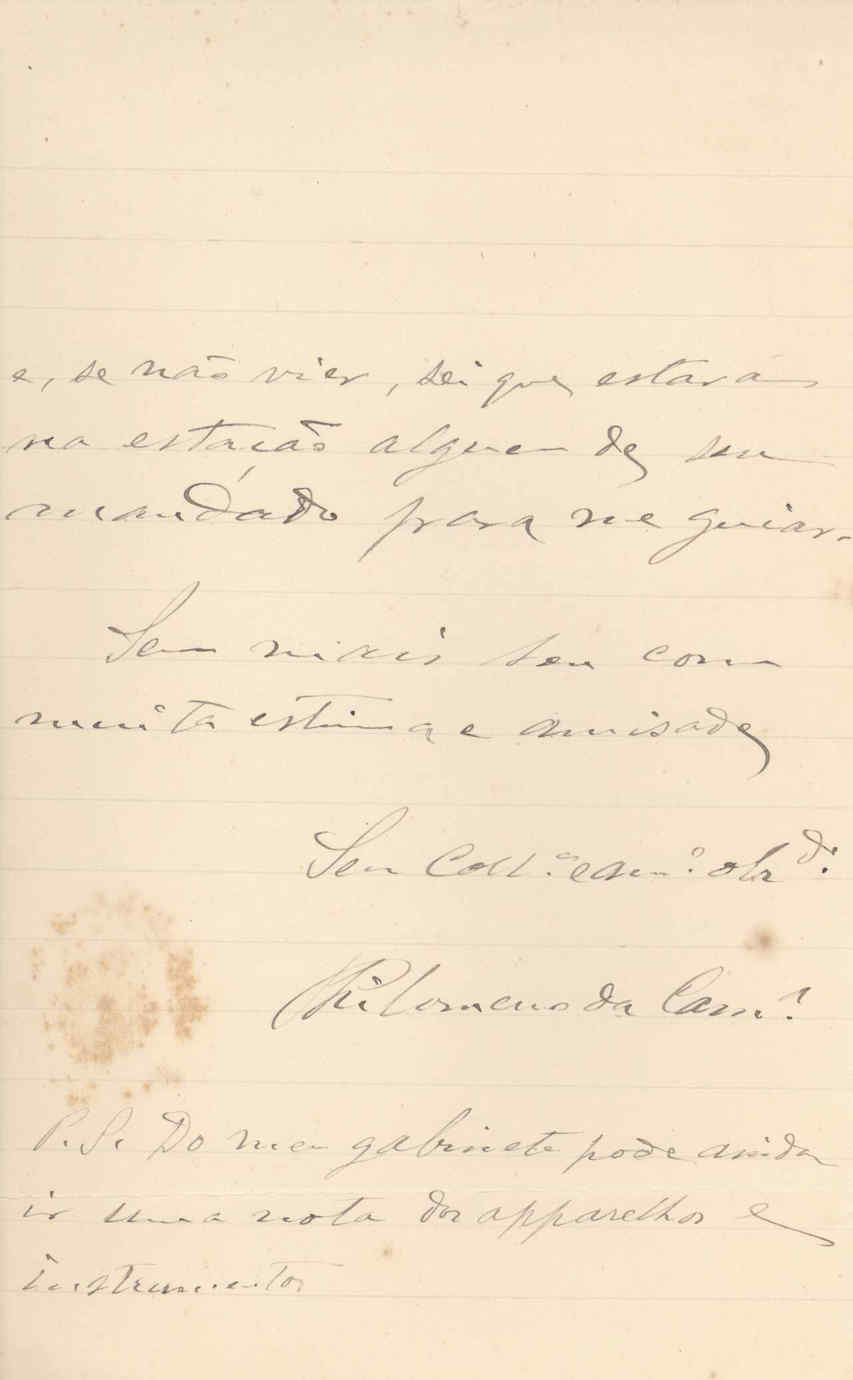 e, se não vier, sei que estará
na estação alguem de seu
mandado para me guiar.
Sem mais seu com
muita estima e amisade
Seu Coll.ª e am.º obr.dº
Philomeno da Cam.ª
P. S. Do meu gabinete pode ainda
ir uma nota dos apparelhos e
instrumentos